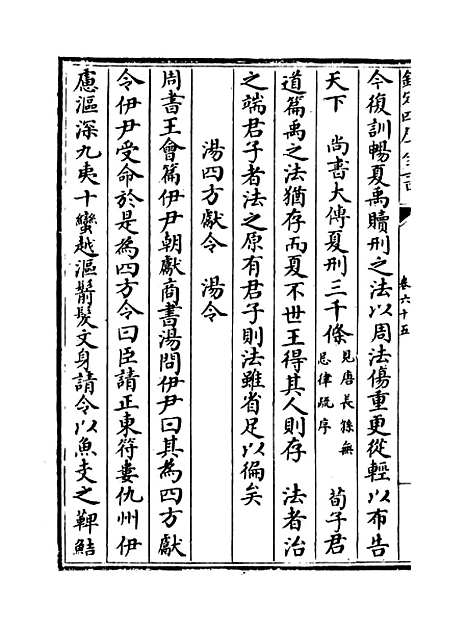 欽定四庫全書
卷六十五
今復訓暢夏禹贖刑之法以周法傷重更從輕以布告
天下　尚書大傳夏刑三千條見唐長孫無忌律疏序　荀子君
道篇禹之法猶存而夏不世王得其人則存　法者治
之端君子者法之原有君子則法雖省足以徧矣
湯四方獻令　湯令
周書王會篇伊尹朝獻商書湯問伊尹曰其為四方獻
令伊尹受命於是為四方令曰臣請正東符婁仇州伊
慮漚深九夷十蠻越漚鬋髮文身請令以魚支之鞞䱜